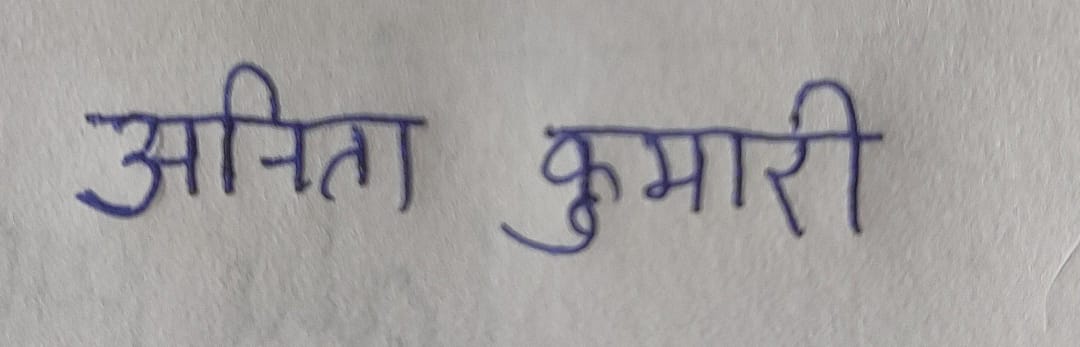 अनिता कुमारी